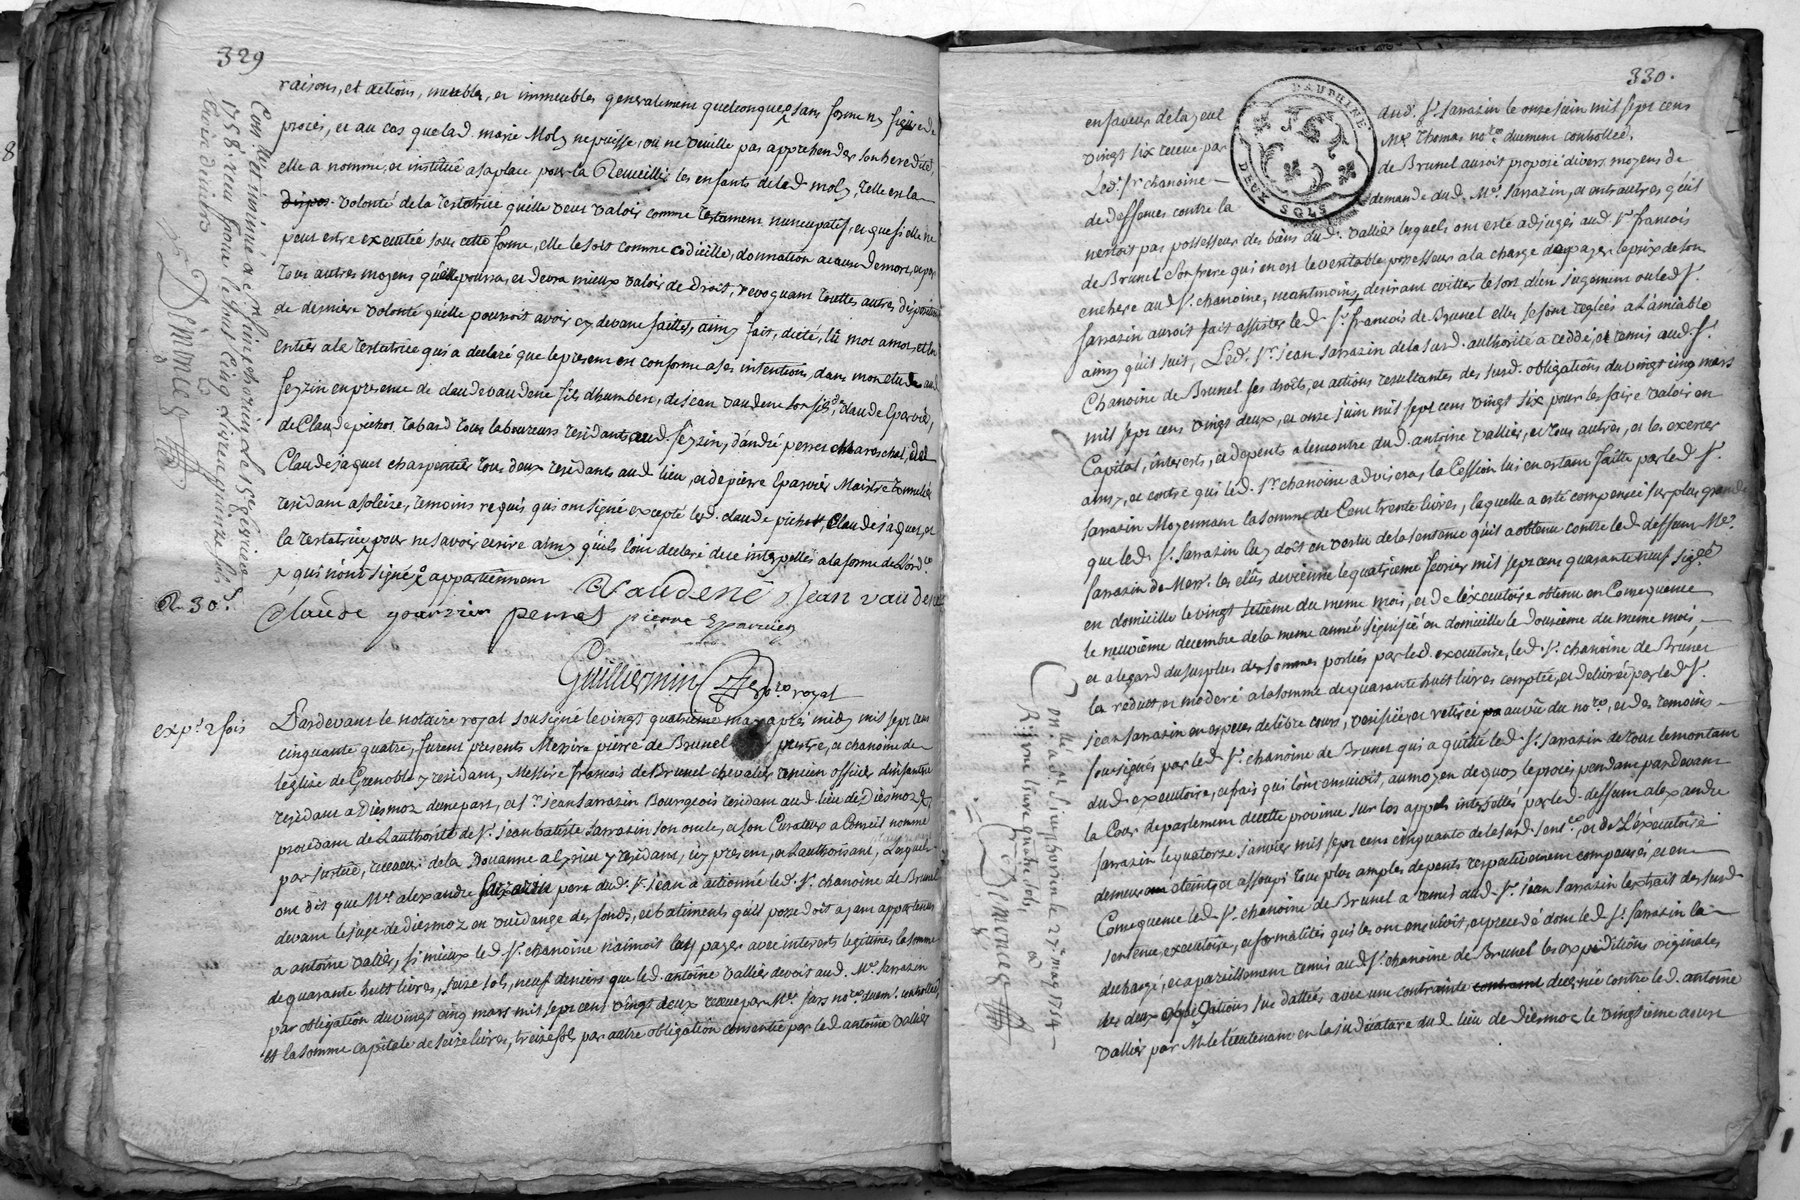 329
raisons, et actions, meubles, et immeubles generalement quelconques sans forme ny figure de
procès, et au cas que lad. marie Moly ne puisse, ou ne veuille pas apprehender son heredité,
elle a nommé, et institué a sa place pour la Recueillir les enfants de lad. moly, telle en la
dispos. volonté de la testatrice qu'elle veut valoir comme testament nuncupatif, et que si elle ne
peut estre executée sous cette forme, elle le soit comme codicille, donnation a cause de mort, et par
tous autres moyens qu'elle pourra, et devra mieux valoir de droit, revoquant touttes autres dispositions
de derniere volonté qu'elle pourroit avoir cy devant faittes, ainsy fait, dicté, lû mot a mot, et en
entier a la testatrice qui a declaré que le present est conforme a ses intentions, dans mon etude aud.
seyzin en presence de claude vaudene fils d'humbert, de jean vaudene son fils, de claude Eparvier,
de Claude pichot tabard tous laboureurs residants aud. seyzin, d'andré perret mareschal, et de
Claude jaquet charpentier tous deux residants aud. lieu, et de pierre Eparvier Maistre tonnelier
residant a temoins requis qui ont signé excepté led. claude pichot, Claude jaquet, et
la testatrice pour ne savoir ecrire ainsy qu'ils l'ont declaré de ce interpellés a la forme de l'ord.ce
qui n'ont signé appartiennent
R. 30 s.
Vaudené jean vaudené
Claude eparvier perret pierre Eparvier
Guilliermin no.re royal
Con.lé et insinué a st Simphorien le 15e fevrier
1758. reçu
livres quinze sols
trois deniers
Demoncez
exp.é 2 fois
Pardevant le notaire royal soussigné le vingt quatrieme may apres midy mil sept cent
cinquante quatre, furent presents Messire pierre de Brunel prestre, et chanoine de
l'église de Grenoble y residant, Messire francois de Brunel chevalier ancien officier d'infanterie
residant a Diesmoz d'une part, et s.r jean sarrazin Bourgeois residant aud. lieu de Diesmoz
procedant de L'authorité de s.r jean batiste sarrazin son oncle, et son Curateur a Conseil nommé
par justice, receveur de la Douanne a y residant, icy present, et L'authorisant, Lesquels
ont dit que M.re alexandre sarrazin pere dud. s.r jean a actionné led. s.r chanoine de Brunel
devant le juge de Diesmoz en vuidange des fonds, et batiments qu'il possedoit ayant appartenus
a antoine vallier, si mieux led. s.r chanoine n'aimoit luy payer avec interests legitimes la somme
de quarante huit livres, seize sols, neuf deniers que led. antoine vallier devoit aud. M.re sarrazin
par obligation du vingt cinq mars mil sept cent vingt deux receue par M.re no.re duem.t controllée,
et la somme capitale de seize livres, treize sols par autre obligation consentie par led. antoine vallier
330.
DAUPHINÉ
DEUX SOLS
en faveur de la seul aud. s.r sarrazin le onze juin mil sept cent
vingt six receue par M.e Thomas no.re duement controllée.
Led. s.r chanoine de Brunel auroit proposé divers moyens de
de deffences contre la demande dud. M.re sarrazin, et entr'autres qu'il
n'estoit pas possesseur des biens dud. vallier lesquels ont esté adjugés aud. s.r francois
de Brunel son frere qui en est le veritable possesseur a la charge de payer le prix de son
enchere aud. s.r chanoine, neantmoins desirant eviter le sort d'un jugement ou led. s.r
sarrazin auroit fait assister led. s.r francois de Brunel elles se sont reglées a l'amiable
ainsy qu'il suit, Led. s.r jean sarrazin de la susd. authorité a ceddé, et remis aud. s.r
Chanoine de Brunel ses droits, et actions resultantes des susd. obligations du vingt cinq mars
mil sept cent vingt deux, et onze juin mil sept cent vingt six pour les faire valoir en
Capital, interests, et depents a l'encontre dud. antoine vallier, et tous autres, et les exercer
ainsy, et contre qui led. s.r chanoine advisera, la Cession lui en estant faitte par led. s.r
sarrazin Moyennant la somme de Cent trente livres, laquelle a esté compensée sur plus grande
que led. s.r sarrazin luy doit en vertu de la sentence qu'il a obtenu contre led. deffunt M.re
sarrazin de Mess.rs les elûs de vienne le quatrieme fevrier mil sept cent quarante neuf sig.ée
en domicille le vingt setième du meme mois, et de l'executoire obtenu en Consequence
le neuvième decembre de la meme année signifié en domicille le douzieme du meme mois,
et a l'egard du surplus des sommes portées par led. executoire, led. s.r chanoine de Brunel
les reduit et moderé a la somme de quarante huit livres comptée, et delivrée par led. s.r
jean sarrazin en especes de libre cours, verifiée, et retirée au vû du no.re, et des temoins
soussignés par led. s.r chanoine de Brunel qui a quitté led. s.r sarrazin de tout le montant
dud. executoire, et frais qui l'ont ensuivit, au moyen de quoy le procès pendant pardevant
la Cour de parlement de cette province sur les appels interjettés par led. deffunt alexandre
sarrazin le quatorze janvier mil sept cent cinquante de la susd. sent.ce, et de L'executoire
demeure eteint, et assoupi tous plus amples depents respectivement compensés, et en
Consequence led. s.r chanoine de Brunel a remis aud. s.r jean sarrazin l'extrait des susd.
sentence executoire, et formalités qui les ont ensuivit, et procedé dont led. s.r sarrazin l'a
dechargé, et a pareillement remis aud. s.r chanoine de Brunel les expeditions originales
des deux obligations sus dattées avec une contrainte decernée contre led. antoine
vallier par M.r le lieutenant en la judicature dud. lieu de diesmoz le vingtieme aoust
Con.lé a S.t Simphorien le 27e may 1754
R. livre quatre sols
Demoncez